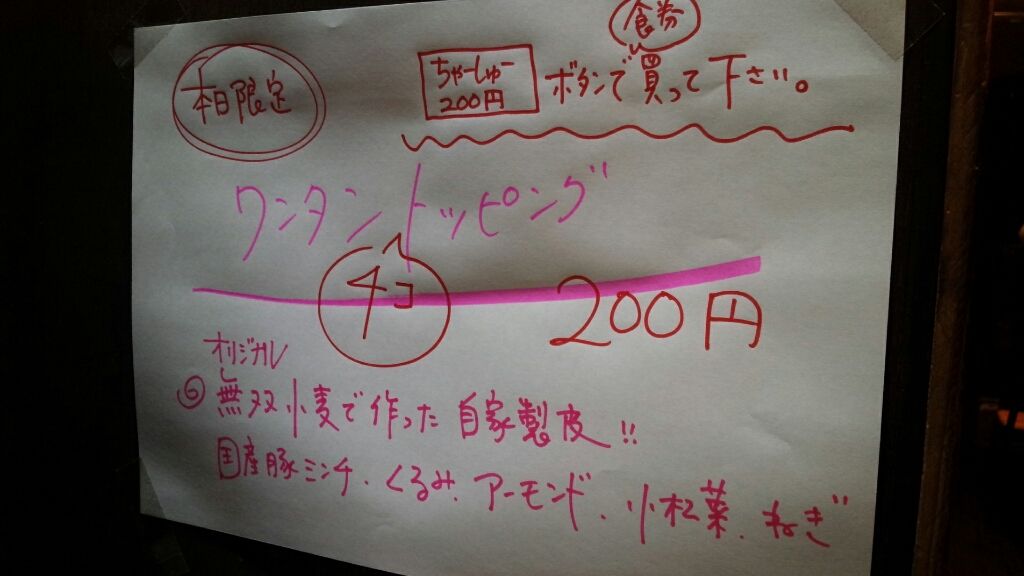 本日限定
食券
ちゃーしゅー
200円
ボタンで買って下さい。
ワンタントッピング
4コ
200円
オリジナル
◎無双小麦で作った自家製皮!!
国産豚ミンチ、くるみ、アーモンド、小松菜、ねぎ